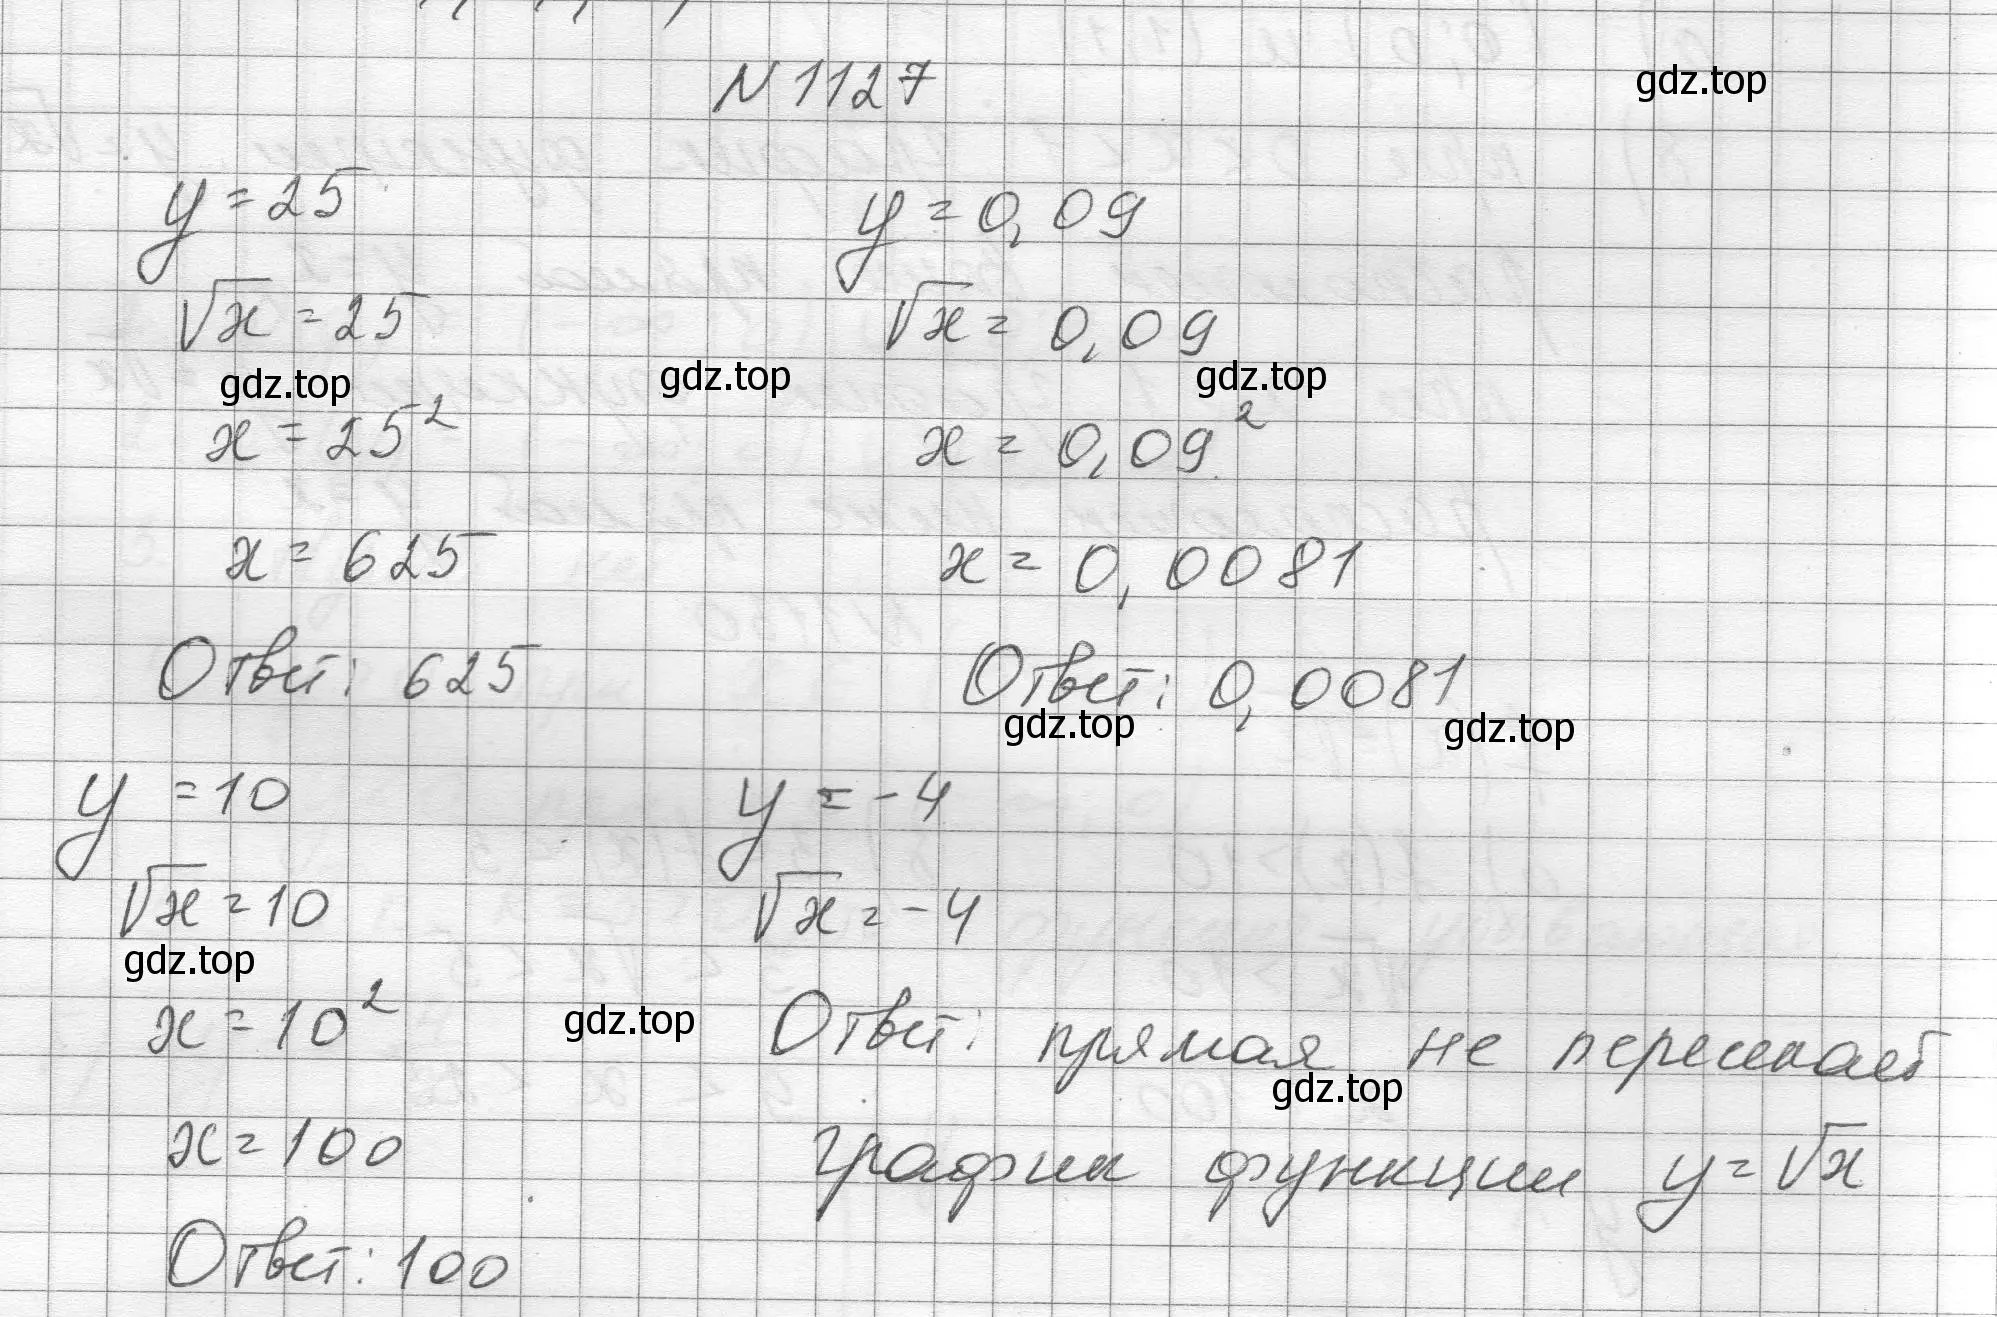 N 1127
gdz.top
y = 25
√x = 25
gdz.top
x = 25²
x = 625
Ответ: 625
y = 0,09
√x = 0,09
gdz.top
gdz.top
x = 0,09²
x = 0,0081
Ответ: 0,0081
gdz.top
gdz.top
y = 10
√x = 10
gdz.top
x = 10²
x = 100
Ответ: 100
y = -4
√x = -4
gdz.top
Ответ: прямая не пересекает
gdz.top
график функции y = √x